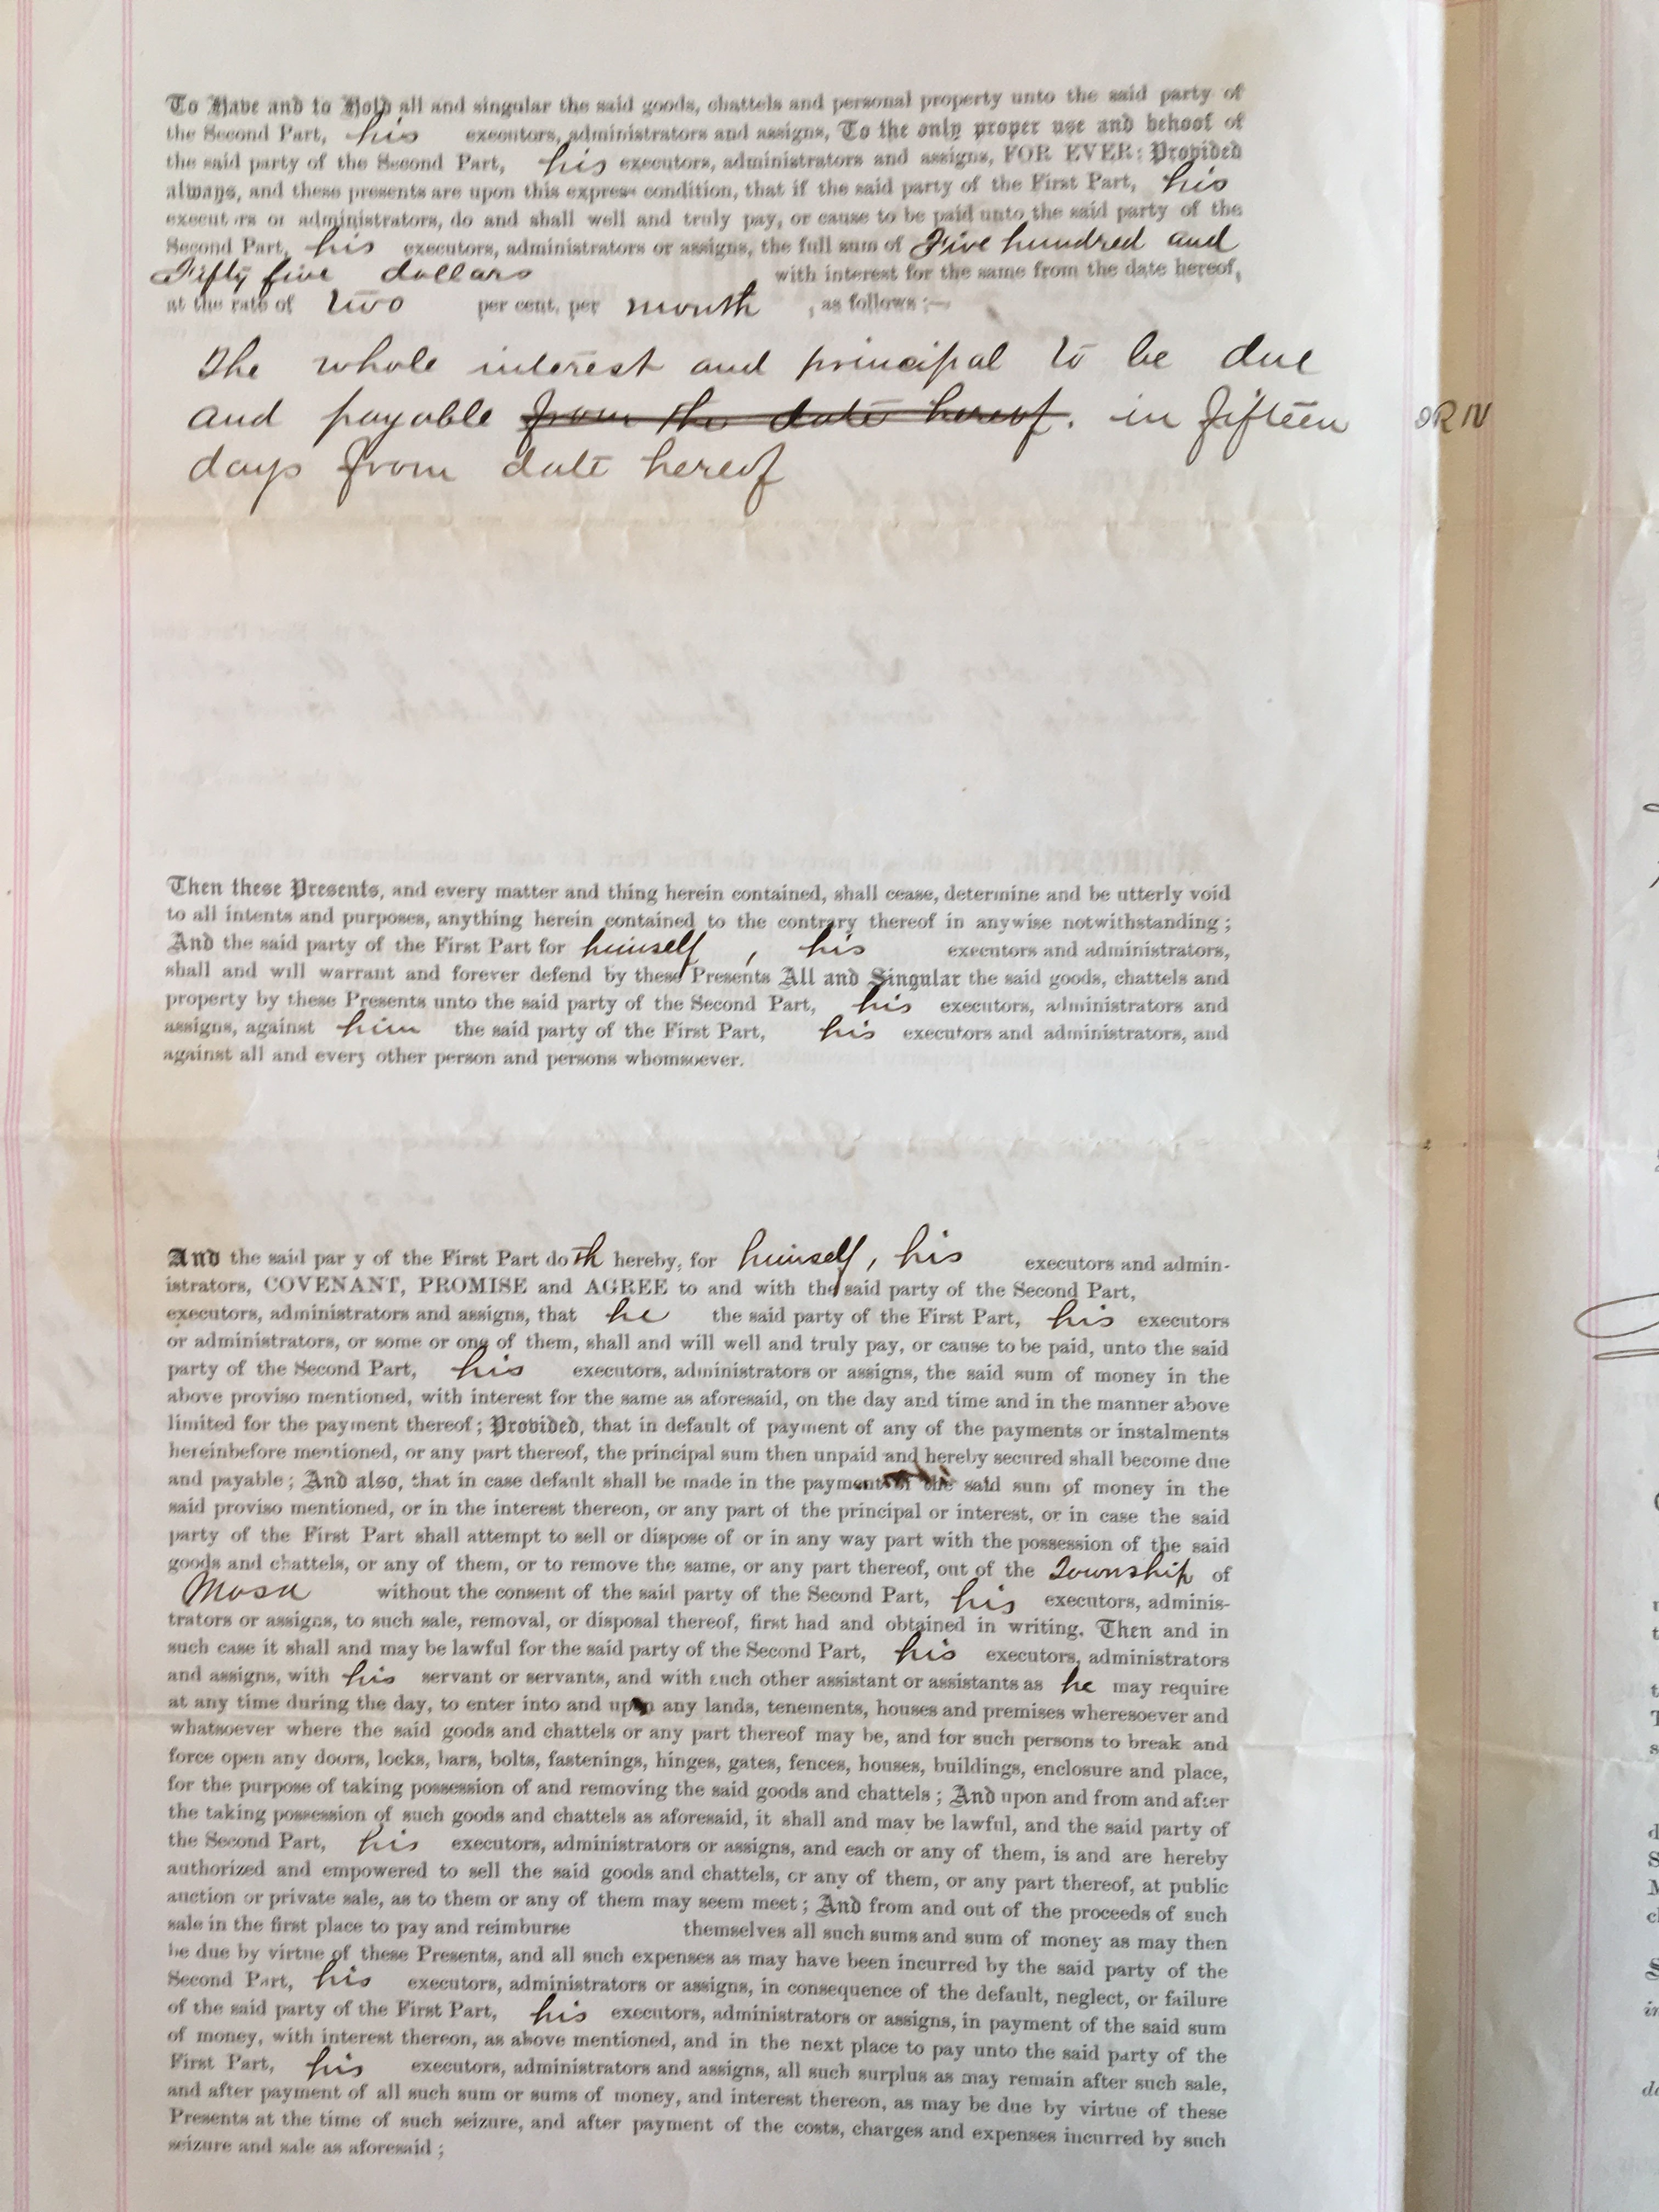 To Have and to Hold all and singular the said goods, chattels and personal property unto the said party of
the Second Part, his executors, administrators and assigns, To the only proper use and behoof of
the said party of the Second Part, his executors, administrators and assigns, FOR EVER: Provided
always, and these presents are upon this express condition, that if the said party of the First Part, his
executors or administrators, do and shall well and truly pay, or cause to be paid unto the said party of the
Second Part, his executors, administrators or assigns, the full sum of Five hundred and
Fifty five dollars with interest for the same from the date hereof,
at the rate of two per cent. per month , as follows :—
The whole interest and principal to be due
and payable from the date hereof. in fifteen
days from date hereof
Then these Presents, and every matter and thing herein contained, shall cease, determine and be utterly void
to all intents and purposes, anything herein contained to the contrary thereof in anywise notwithstanding ;
And the said party of the First Part for himself , his executors and administrators,
shall and will warrant and forever defend by these Presents All and Singular the said goods, chattels and
property by these Presents unto the said party of the Second Part, his executors, administrators and
assigns, against him the said party of the First Part, his executors and administrators, and
against all and every other person and persons whomsoever.
And the said par y of the First Part doth hereby, for himself, his executors and admin-
istrators, COVENANT, PROMISE and AGREE to and with the said party of the Second Part,
executors, administrators and assigns, that he the said party of the First Part, his executors
or administrators, or some or one of them, shall and will well and truly pay, or cause to be paid, unto the said
party of the Second Part, his executors, administrators or assigns, the said sum of money in the
above proviso mentioned, with interest for the same as aforesaid, on the day and time and in the manner above
limited for the payment thereof ; Provided, that in default of payment of any of the payments or instalments
hereinbefore mentioned, or any part thereof, the principal sum then unpaid and hereby secured shall become due
and payable ; And also, that in case default shall be made in the payment of the said sum of money in the
said proviso mentioned, or in the interest thereon, or any part of the principal or interest, or in case the said
party of the First Part shall attempt to sell or dispose of or in any way part with the possession of the said
goods and chattels, or any of them, or to remove the same, or any part thereof, out of the Township of
Mosa without the consent of the said party of the Second Part, his executors, adminis-
trators or assigns, to such sale, removal, or disposal thereof, first had and obtained in writing. Then and in
such case it shall and may be lawful for the said party of the Second Part, his executors, administrators
and assigns, with his servant or servants, and with such other assistant or assistants as he may require
at any time during the day, to enter into and upon any lands, tenements, houses and premises wheresoever and
whatsoever where the said goods and chattels or any part thereof may be, and for such persons to break and
force open any doors, locks, bars, bolts, fastenings, hinges, gates, fences, houses, buildings, enclosure and place,
for the purpose of taking possession of and removing the said goods and chattels ; And upon and from and after
the taking possession of such goods and chattels as aforesaid, it shall and may be lawful, and the said party of
the Second Part, his executors, administrators or assigns, and each or any of them, is and are hereby
authorized and empowered to sell the said goods and chattels, or any of them, or any part thereof, at public
auction or private sale, as to them or any of them may seem meet ; And from and out of the proceeds of such
sale in the first place to pay and reimburse themselves all such sums and sum of money as may then
be due by virtue of these Presents, and all such expenses as may have been incurred by the said party of the
Second Part, his executors, administrators or assigns, in consequence of the default, neglect, or failure
of the said party of the First Part, his executors, administrators or assigns, in payment of the said sum
of money, with interest thereon, as above mentioned, and in the next place to pay unto the said party of the
First Part, his executors, administrators and assigns, all such surplus as may remain after such sale,
and after payment of all such sum or sums of money, and interest thereon, as may be due by virtue of these
Presents at the time of such seizure, and after payment of the costs, charges and expenses incurred by such
seizure and sale as aforesaid ;